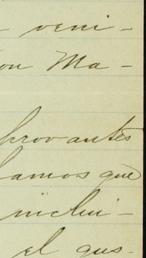 - veni-
on Ma-
provantes
lamos que
inclui-
el gus-